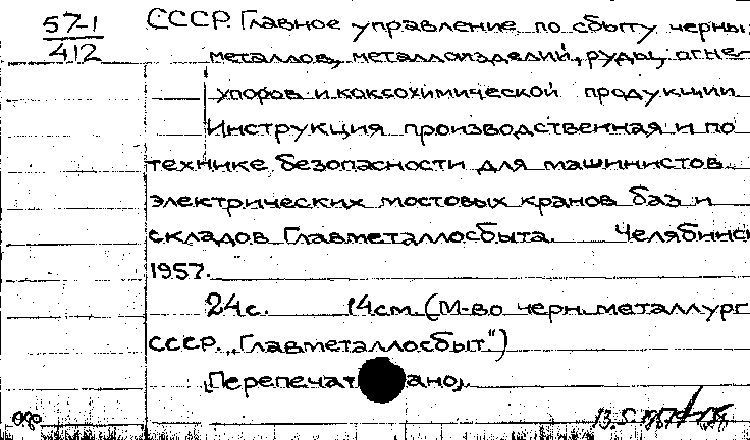 57-1
412
СССР. Главное управление по сбыту черны
металлов, металлоизделий, руды, огне-
упоров и коксохимической продукции
Инструкция производственная и по
технике безопасности для машинистов
электрических мостовых кранов баз и
складов Главметаллосбыта. Челябинс
1957.
24с. 14см. (М-во черн. металлург
СССР. „Главметаллосбыт")
Перепечат ано,